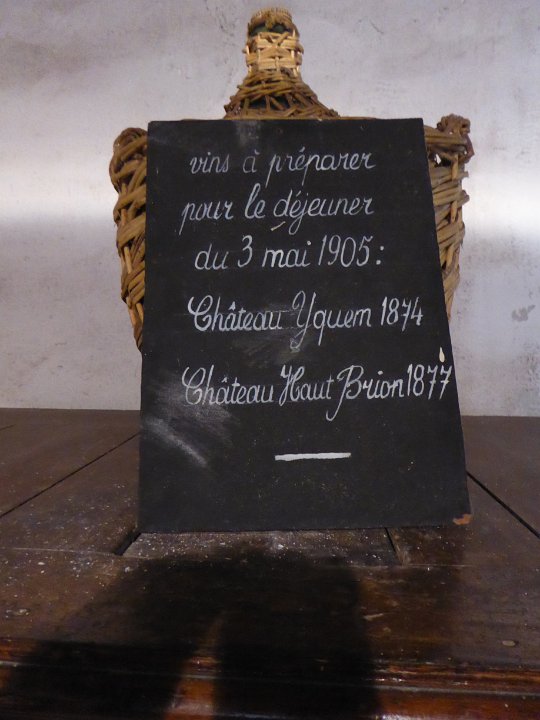 vins à préparer
pour le déjeuner
du 3 mai 1905:
Château Yquem 1874
Château Haut Brion 1877